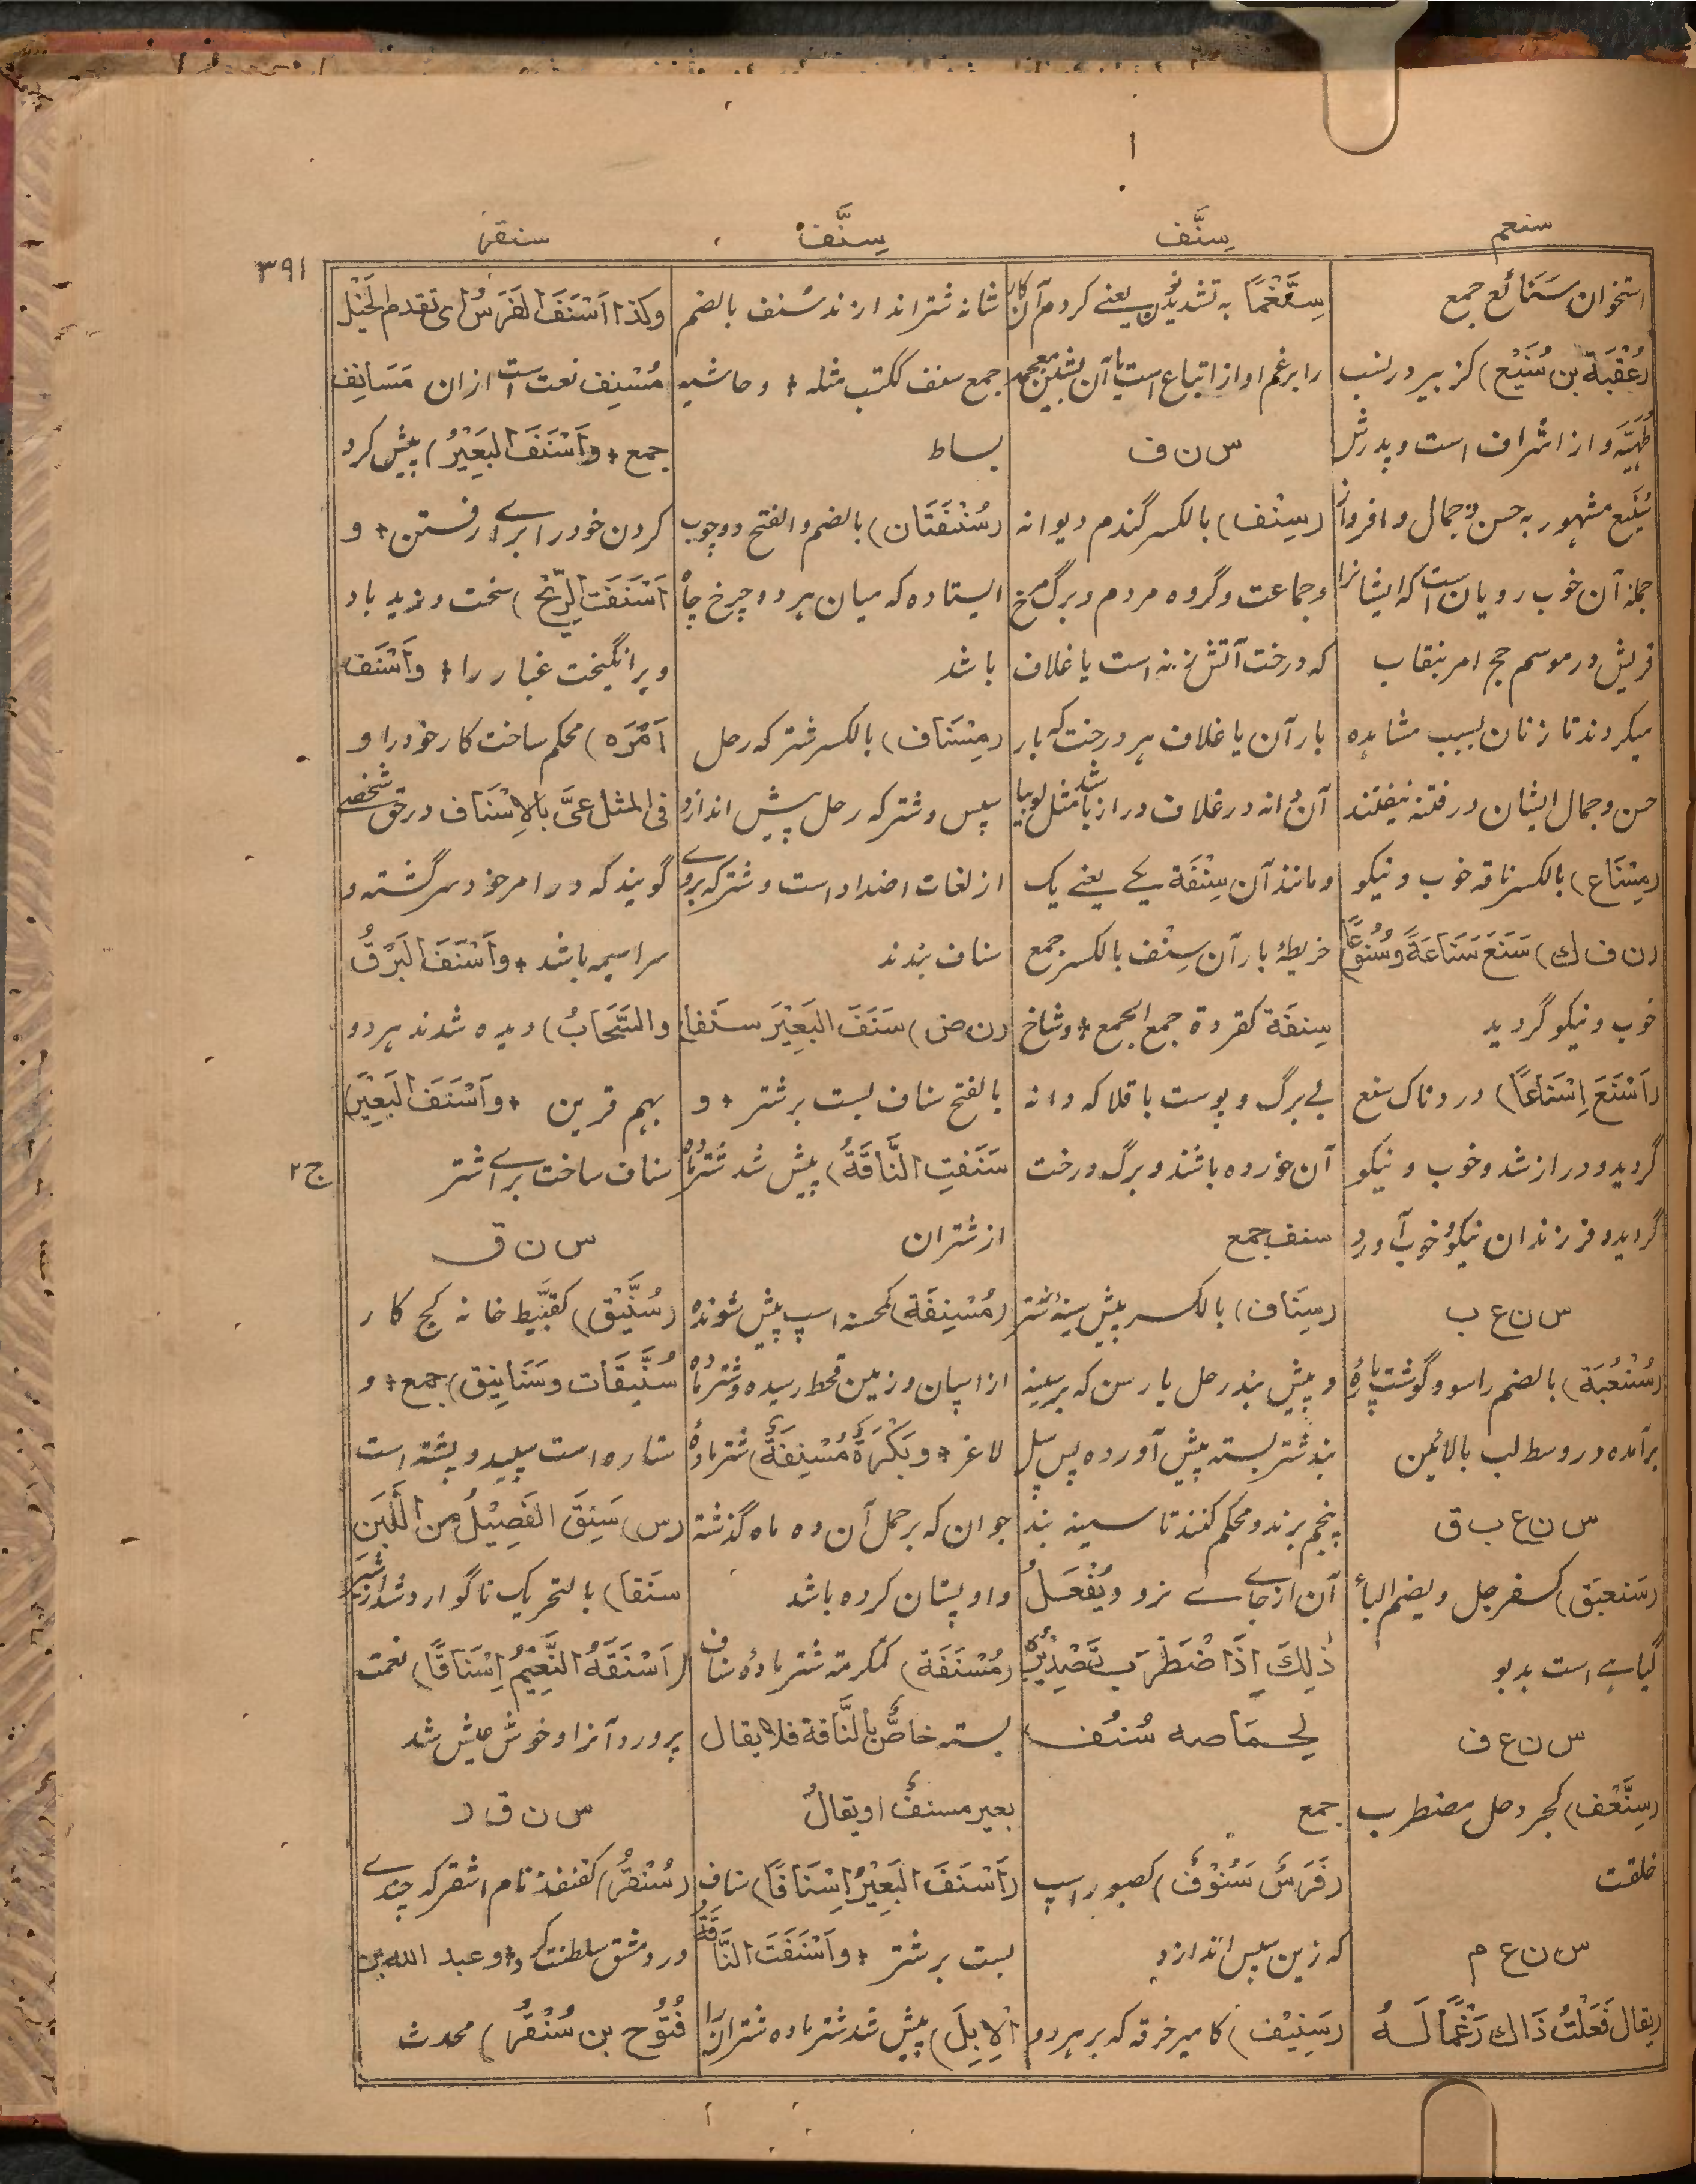 سنعم
سِنَّف
سِنَّف
سنقر
٣٩١
استخوان سَنَائع جمع
(عُقْبَة بن سُنَيْع) کزبیر در نسب
طُهَيَّة و از اشراف است و پدرش
سُنَيع مشهور به حسن و جمال و افروز از
جملهٔ آن خوب رویان است که ایشانرا
قریش در موسم حج امر بنقاب
میکردند تا زنان بسبب مشاهده
حسن و جمال ایشان در فتنه نیفتند
(مِسْنَاع) بالکسر ناقه خوب و نیکو
(ن ف ك) سَنَعَ سَنَاعَةً وَسُنُوْعًا
خوب و نیکو گردید
(اَسْنَعَ اِسْنَاعًا) دردناک سنع
گردید و دراز شد و خوب و نیکو
گردید و فرزندان نیکو و خوب آورد
س ن ع ب
(سُنْعُبَة) بالضم راسو و گوشت پارهٔ
برآمده در وسط لب بالائین
س ن ع ب ق
(سَنعبَق) کسفرجل و بضم الباٰ
گیاهے است بدبو
س ن ع ف
(سِنَّعْف) کجردحل مضطرب
خلقت
س ن ع م
(یقال فَعَلْتُ ذَاك رَغْمًا لَهُ
سِنَّغْمًا به تشدید نون یعنے کردم آن کار
را برغم او از اتباع است یا آن بشین معجمه
س ن ف
(سِنْف) بالکسر گندم دیوانه
و جماعت و گروه مردم و برگ مرخ
که درخت آتش زنه است یا غلاف
بار آن یا غلاف هر درخت که بار
آن دانه در غلاف دراز باشد مثل لوبیا
و مانند آن سِنْفَة یکے یعنے یک
خریطهٔ بار آن سِنْف بالکسر جمع
سِنفَة کقردة جمع الجمع + و شاخ
بے برگ و پوست باقلا که دانه
آن خورده باشند و برگ درخت
سنف جمع
(سِنَاف) بالکسر پیش سینهٔ شتر
و پیش بند رحل یا رسن که برسینه
بند شتر بسته پیش آورده پس پل
پنجم برند و محکم کنند تا سینه بند
آن از جاے نرود وَیُفْعَلُ
ذٰلِكَ اِذَا اضْطَرَبَ تَصْدِيْرُهُ
لِخِمَاصه سُنُف
جمع
(فَرَسٌ سَنُوْفٌ) کصبور اسپ
که زین سپس اندازد
(سَنِيْف) کامیر خرقه که بر هر دو
شانه شتر اندازند سُنف بالضم
جمع سنف ککتب مثله + و حاشیه
بساط
(سُنْفَتَان) بالضم و الفتح دو چوب
ایستاده که میان هر دو چرخ چاه
باشد
(مِسْنَاف) بالکسر شتر که رحل
سپس و شتر که رحل پیش اندازد
از لغات اضداد است و شتر که بروے
سناف بندند
(ن ض) سَنَفَ البَعِيْرَ سنَفا
بالفتح سناف بست بر شتر + و
سَنَفتِ النَّاقَةُ) پیش شد شتر ماده
از شتران
(مُسْنِفَة) کمحسنه اسپ پیش شونده
از اسپان و زمین قحط رسیده و شتر ماده
لاغر + و بَكْرَةٌ مُسْنِفَةٌ) شتر مادهٔ
جوان که برحمل آن ده ماه گذشته
و او پستان کرده باشد
(مُسْنَفَة) کمکرمة شتر مادهٔ سناف
بسته خاصٌّ بالنَّاقة فلا یقال
بعیر مسنفٌ او یقالُ
(اَسْنَفَ البَعِيْرَ اِسْنَافًا) سناف
بست بر شتر + و اَسْنَفَتَ النَّاقَةُ
الْاِبِلَ) پیش شد شتر ماده شتران را
وکذا اَسْنَفَ الفَرَسُ ای تقدم الخَيْل
مُسْنِف نعت است ازان مَسَانِف
جمع + و اَسْنَفَ البَعِيْرُ) پیش کرد
گردن خود را براے رفتن + و
اَسْنَفَت الرِّيْحُ) سخت وزید باد
و برانگیخت غبار را + و اَسْنَفَ
اَمْرَه) محکم ساخت کار خود را و
فی المثل عَیَّ بالاِسْنَاف در حق شخصے
گویند که در امر خود سرگشته و
سراسیمه باشد + و اَسْنَفَ البَرْقُ
والسَّحَابُ) دیده شدند هر دو
بهم قرین + و اَسْنَفَ البَعِيْرَ)
سناف ساخت براے اشتر
س ن ق
(سُنَّيْق) کقبَّیط خانه گچ کار
سُنَّيقَات وسَنَانِيق) جمع + و
ستاره است سپید و پشته است
(س) سَنِقَ الفَصِيْلُ مِنَ اللَّبَن
سنَقا) بالتحریک ناگوارد شد از شیر
(اَسْنَقَهُ النَّعِيْمُ اِسْنَاقًا) نعمت
پرورد آنرا و خوش عیش شد
س ن ق ر
(سُنْقُرُ) کقنفذ نام اشقر که چندے
در دمشق سلطنت کرد + و عبد الله بن
فُتُوْح بن سُنْقُر) محدث
ج ٢